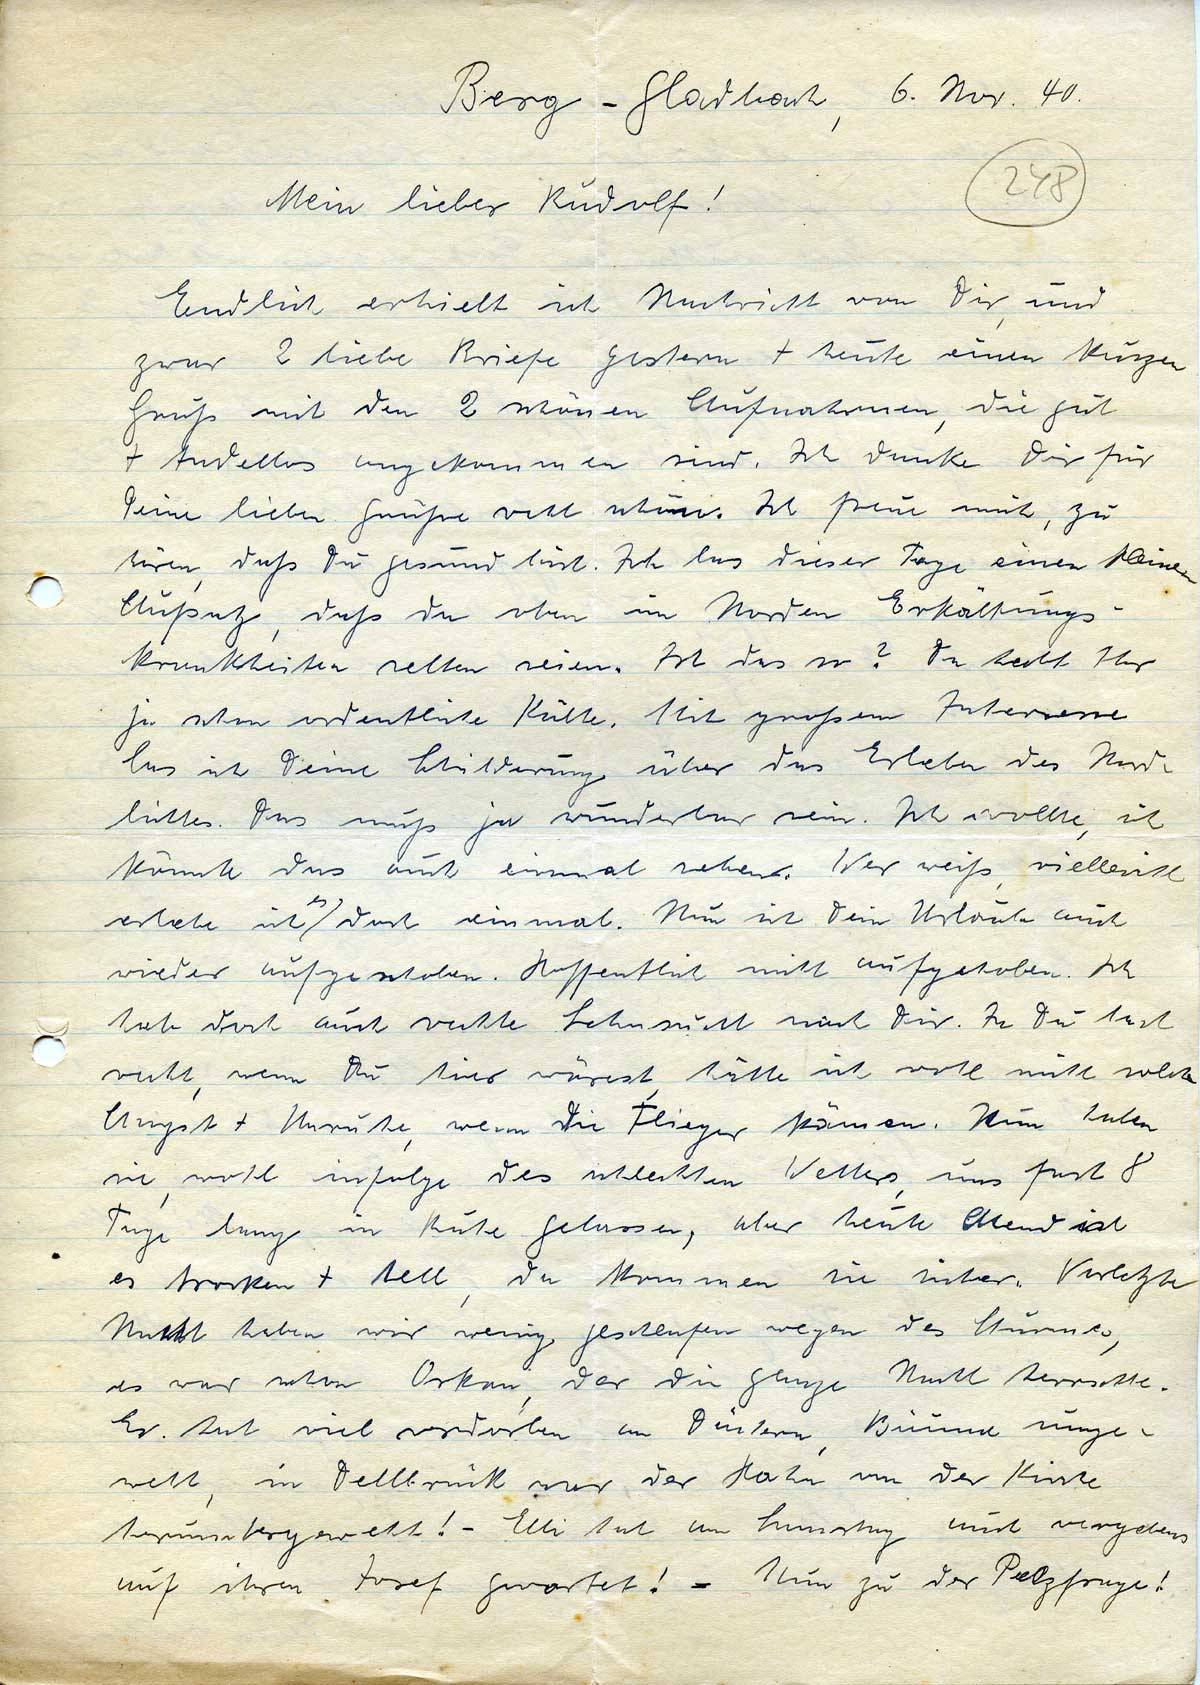 Berg-Gladbach, 6. Nov. 40.
248
Mein lieber Rudolf!
Endlich erhielt ich Nachricht von Dir, und
zwar 2 liebe Briefe gestern + heute einen kurzen
Gruß mit den 2 schönen Aufnahmen, die gut
+ tadellos angekommen sind. Ich danke Dir für
Deine lieben Grüße recht schön. Ich freue mich, zu
hören, daß Du gesund bist. Ich las dieser Tage einen kleinen
Aufsatz, daß da oben im Norden Erkältungs-
krankheiten selten seien. Ist das so? Da habt Ihr
ja schon ordentliche Kälte. Mit großem Interesse
las ich Deine Schilderung über das Erleben des Nord-
lichtes. Das muß ja wunderbar sein. Ich wollte, ich
könnte das auch einmal sehen. Wer weiß, vielleicht
erlebe ich es doch einmal. Nun ist Dein Urlaub auch
wieder aufgeschoben. Hoffentlich nicht aufgehoben. Ich
hab doch auch rechte Sehnsucht nach Dir. Ja Du hast
recht, wenn Du hier wärest, hätte ich wohl nicht solche
Angst + Unruhe, wenn die Flieger kämen. Nun haben
sie, wohl infolge des schlechten Wetters, uns fast 8
Tage lang in Ruhe gelassen, aber heute Abend ist
es trocken + hell, da kommen sie sicher. Vorletzte
Nacht haben wir wenig geschlafen wegen des Sturmes,
es war schon Orkan, der die ganze Nacht herrschte.
Er. hat viel verdorben an Dächern, Bäume umge-
weht, in Dellbrück war der Hahn von der Kirche
heruntergeweht! - Elli hat am Samstag auch vergebens
auf ihren Josef gewartet! - Nun zu der Pelzfrage!